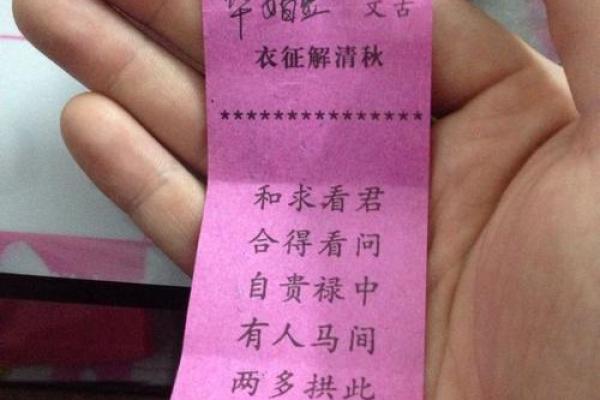 古文
秋清解征衣
****************
君问中间此
看看禄马拱
求得贵人多
和合自有两